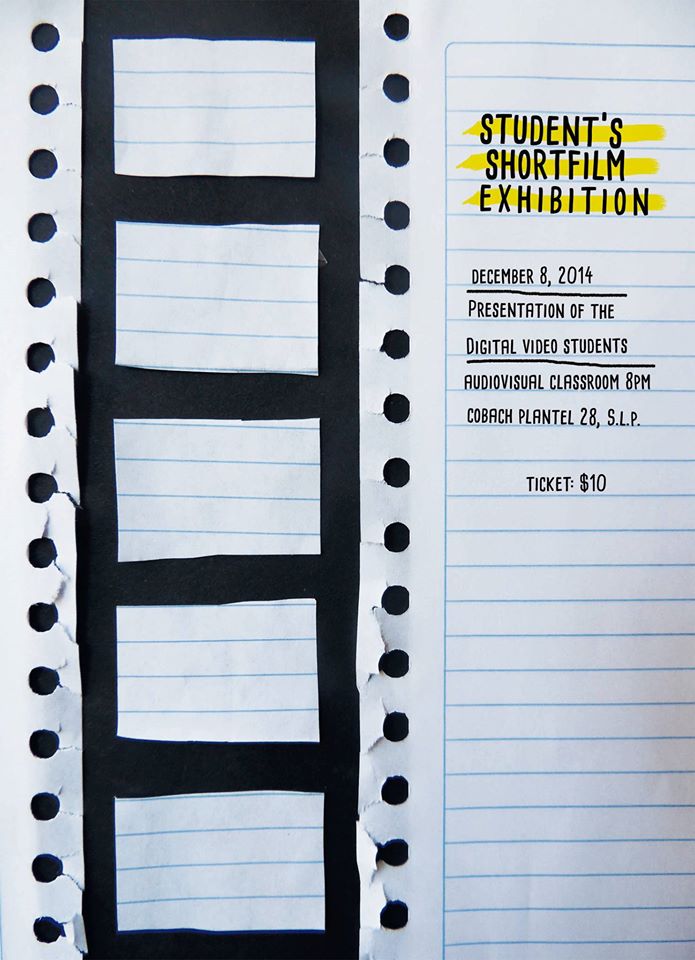 STUDENT'S
SHORTFILM
EXHIBITION
DECEMBER 8, 2014
PRESENTATION OF THE
DIGITAL VIDEO STUDENTS
AUDIOVISUAL CLASSROOM 8PM
COBACH PLANTEL 28, S.L.P.
TICKET: $10